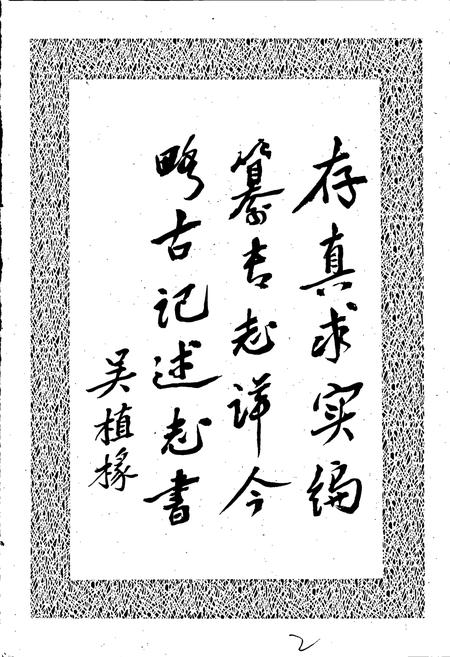 存真求实编
纂吉志详今
略古记述志書
吴植椽
2